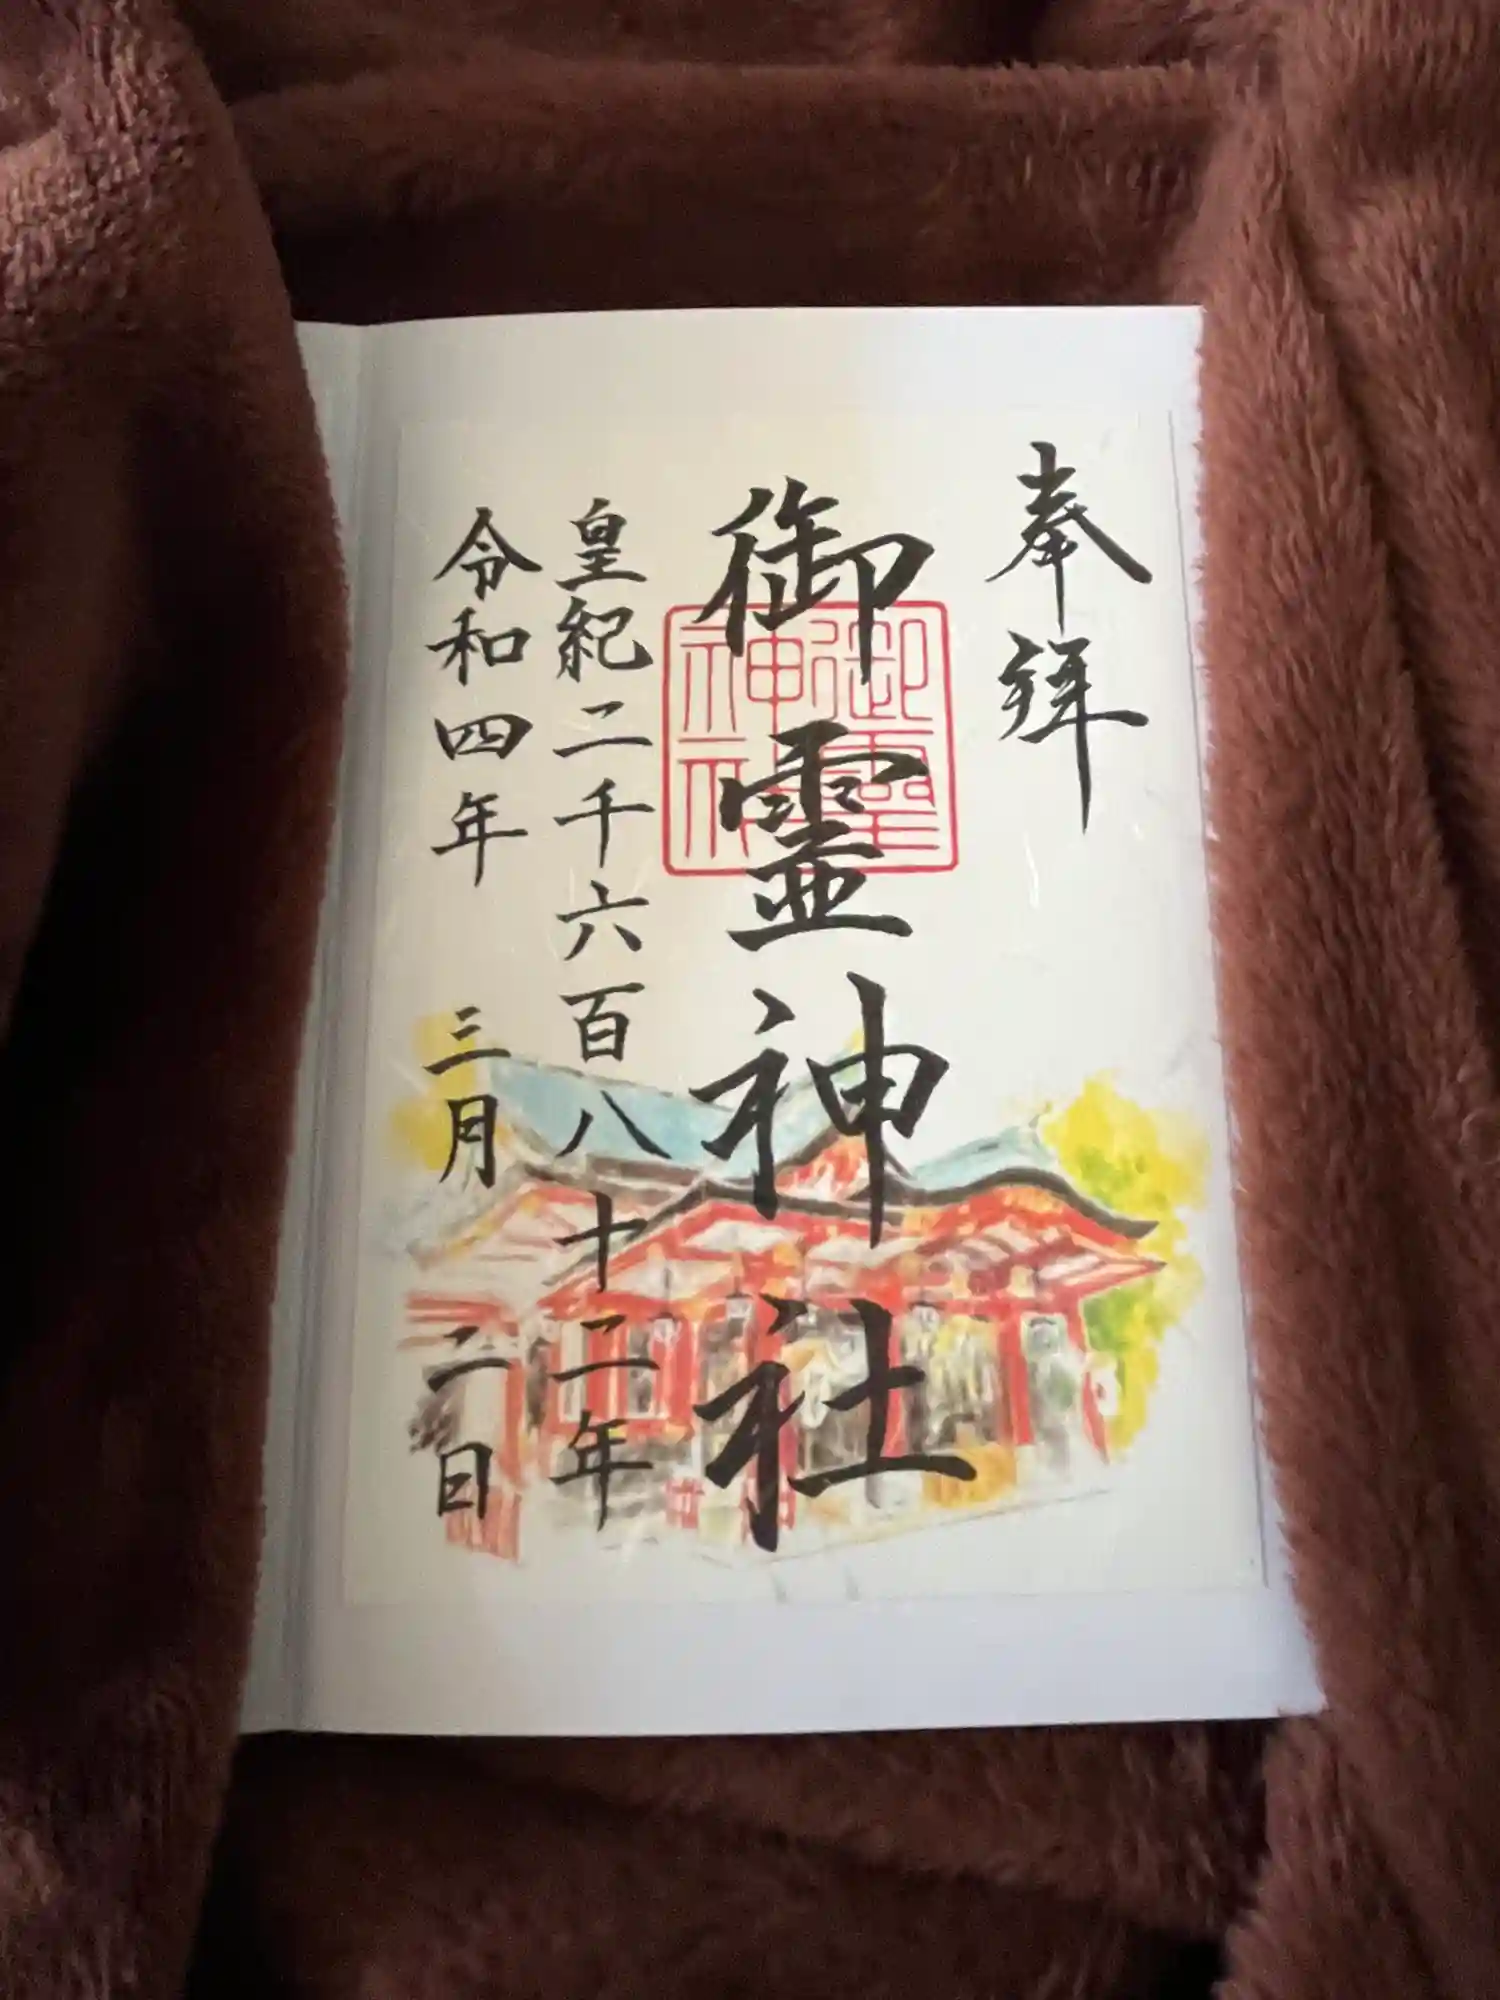 奉拝
御霊神社
御霊
神社
皇紀二千六百八十二年
令和四年 三月 二日